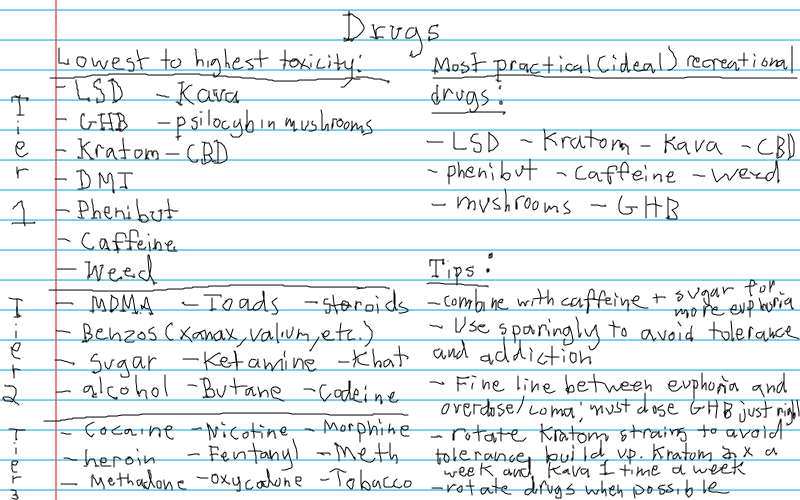 Drugs
Lowest to highest toxicity:
Tier 1
- LSD - Kava
- GHB - psilocybin mushrooms
- Kratom - CBD
- DMT
- Phenibut
- Caffeine
- Weed
Tier 2
- MDMA - Toads - steroids
- Benzos (xanax, valium, etc.)
- sugar - Ketamine - Khat
- alcohol - Butane - Codeine
Tier 3
- Cocaine - Nicotine - Morphine
- heroin - Fentanyl - Meth
- Methadone - oxycodone - Tobacco
Most practical (ideal) recreational
drugs:
- LSD - Kratom - Kava - CBD
- phenibut - Caffeine - weed
- mushrooms - GHB
Tips:
- combine with caffeine + sugar for
more euphoria
- Use sparingly to avoid tolerance
and addiction
- Fine line between euphoria and
overdose/coma; must dose GHB just right
- rotate Kratom strains to avoid
tolerance build up. Kratom 2x a
week and Kava 1 time a week
- rotate drugs when possible